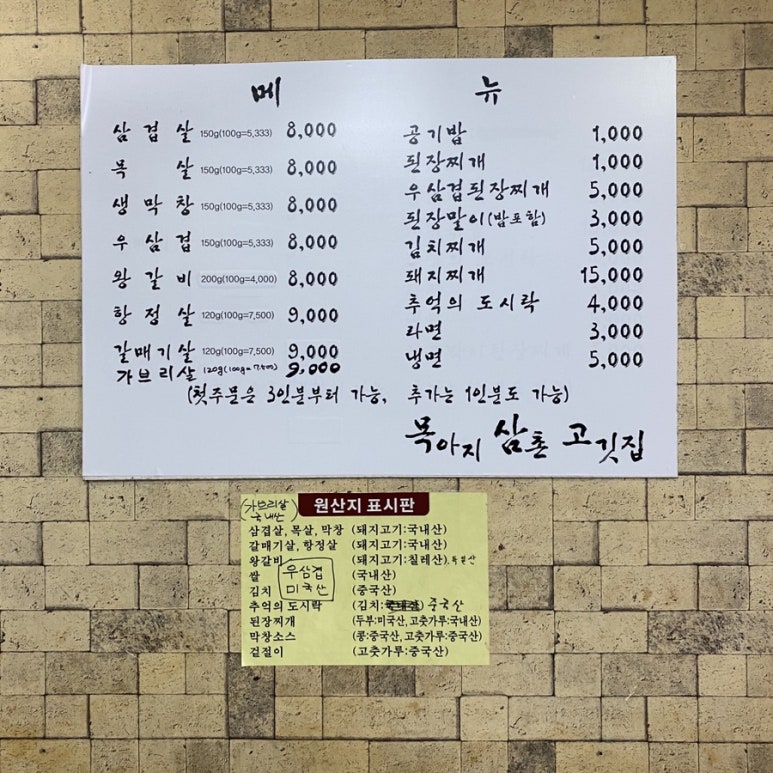 메 뉴
삼겹살 150g(100g=5,333) 8,000
목살 150g(100g=5,333) 8,000
생막창 150g(100g=5,333) 8,000
우삼겹 150g(100g=5,333) 8,000
왕갈비 200g(100g=4,000) 8,000
항정살 120g(100g=7,500) 9,000
갈매기살 120g(100g=7,500) 9,000
가브리살 120g(100g=7,500) 9,000
공기밥 1,000
된장찌개 1,000
우삼겹된장찌개 5,000
된장말이(밥포함) 3,000
김치찌개 5,000
돼지찌개 15,000
추억의 도시락 4,000
라면 3,000
냉면 5,000
(첫주문은 3인분부터 가능, 추가는 1인분도 가능)
목아지 삼촌 고깃집
(가브리살 국내산)
원산지 표시판
삼겹살, 목살, 막창 (돼지고기:국내산)
갈매기살, 항정살 (돼지고기:국내산)
왕갈비 (돼지고기:칠레산)
쌀 (국내산)
김치 (중국산)
우삼겹
미국산
추억의 도시락 (김치: ) 중국산
된장찌개 (두부:미국산, 고춧가루:국내산)
막창소스 (콩:중국산, 고춧가루:중국산)
겉절이 (고춧가루:중국산)